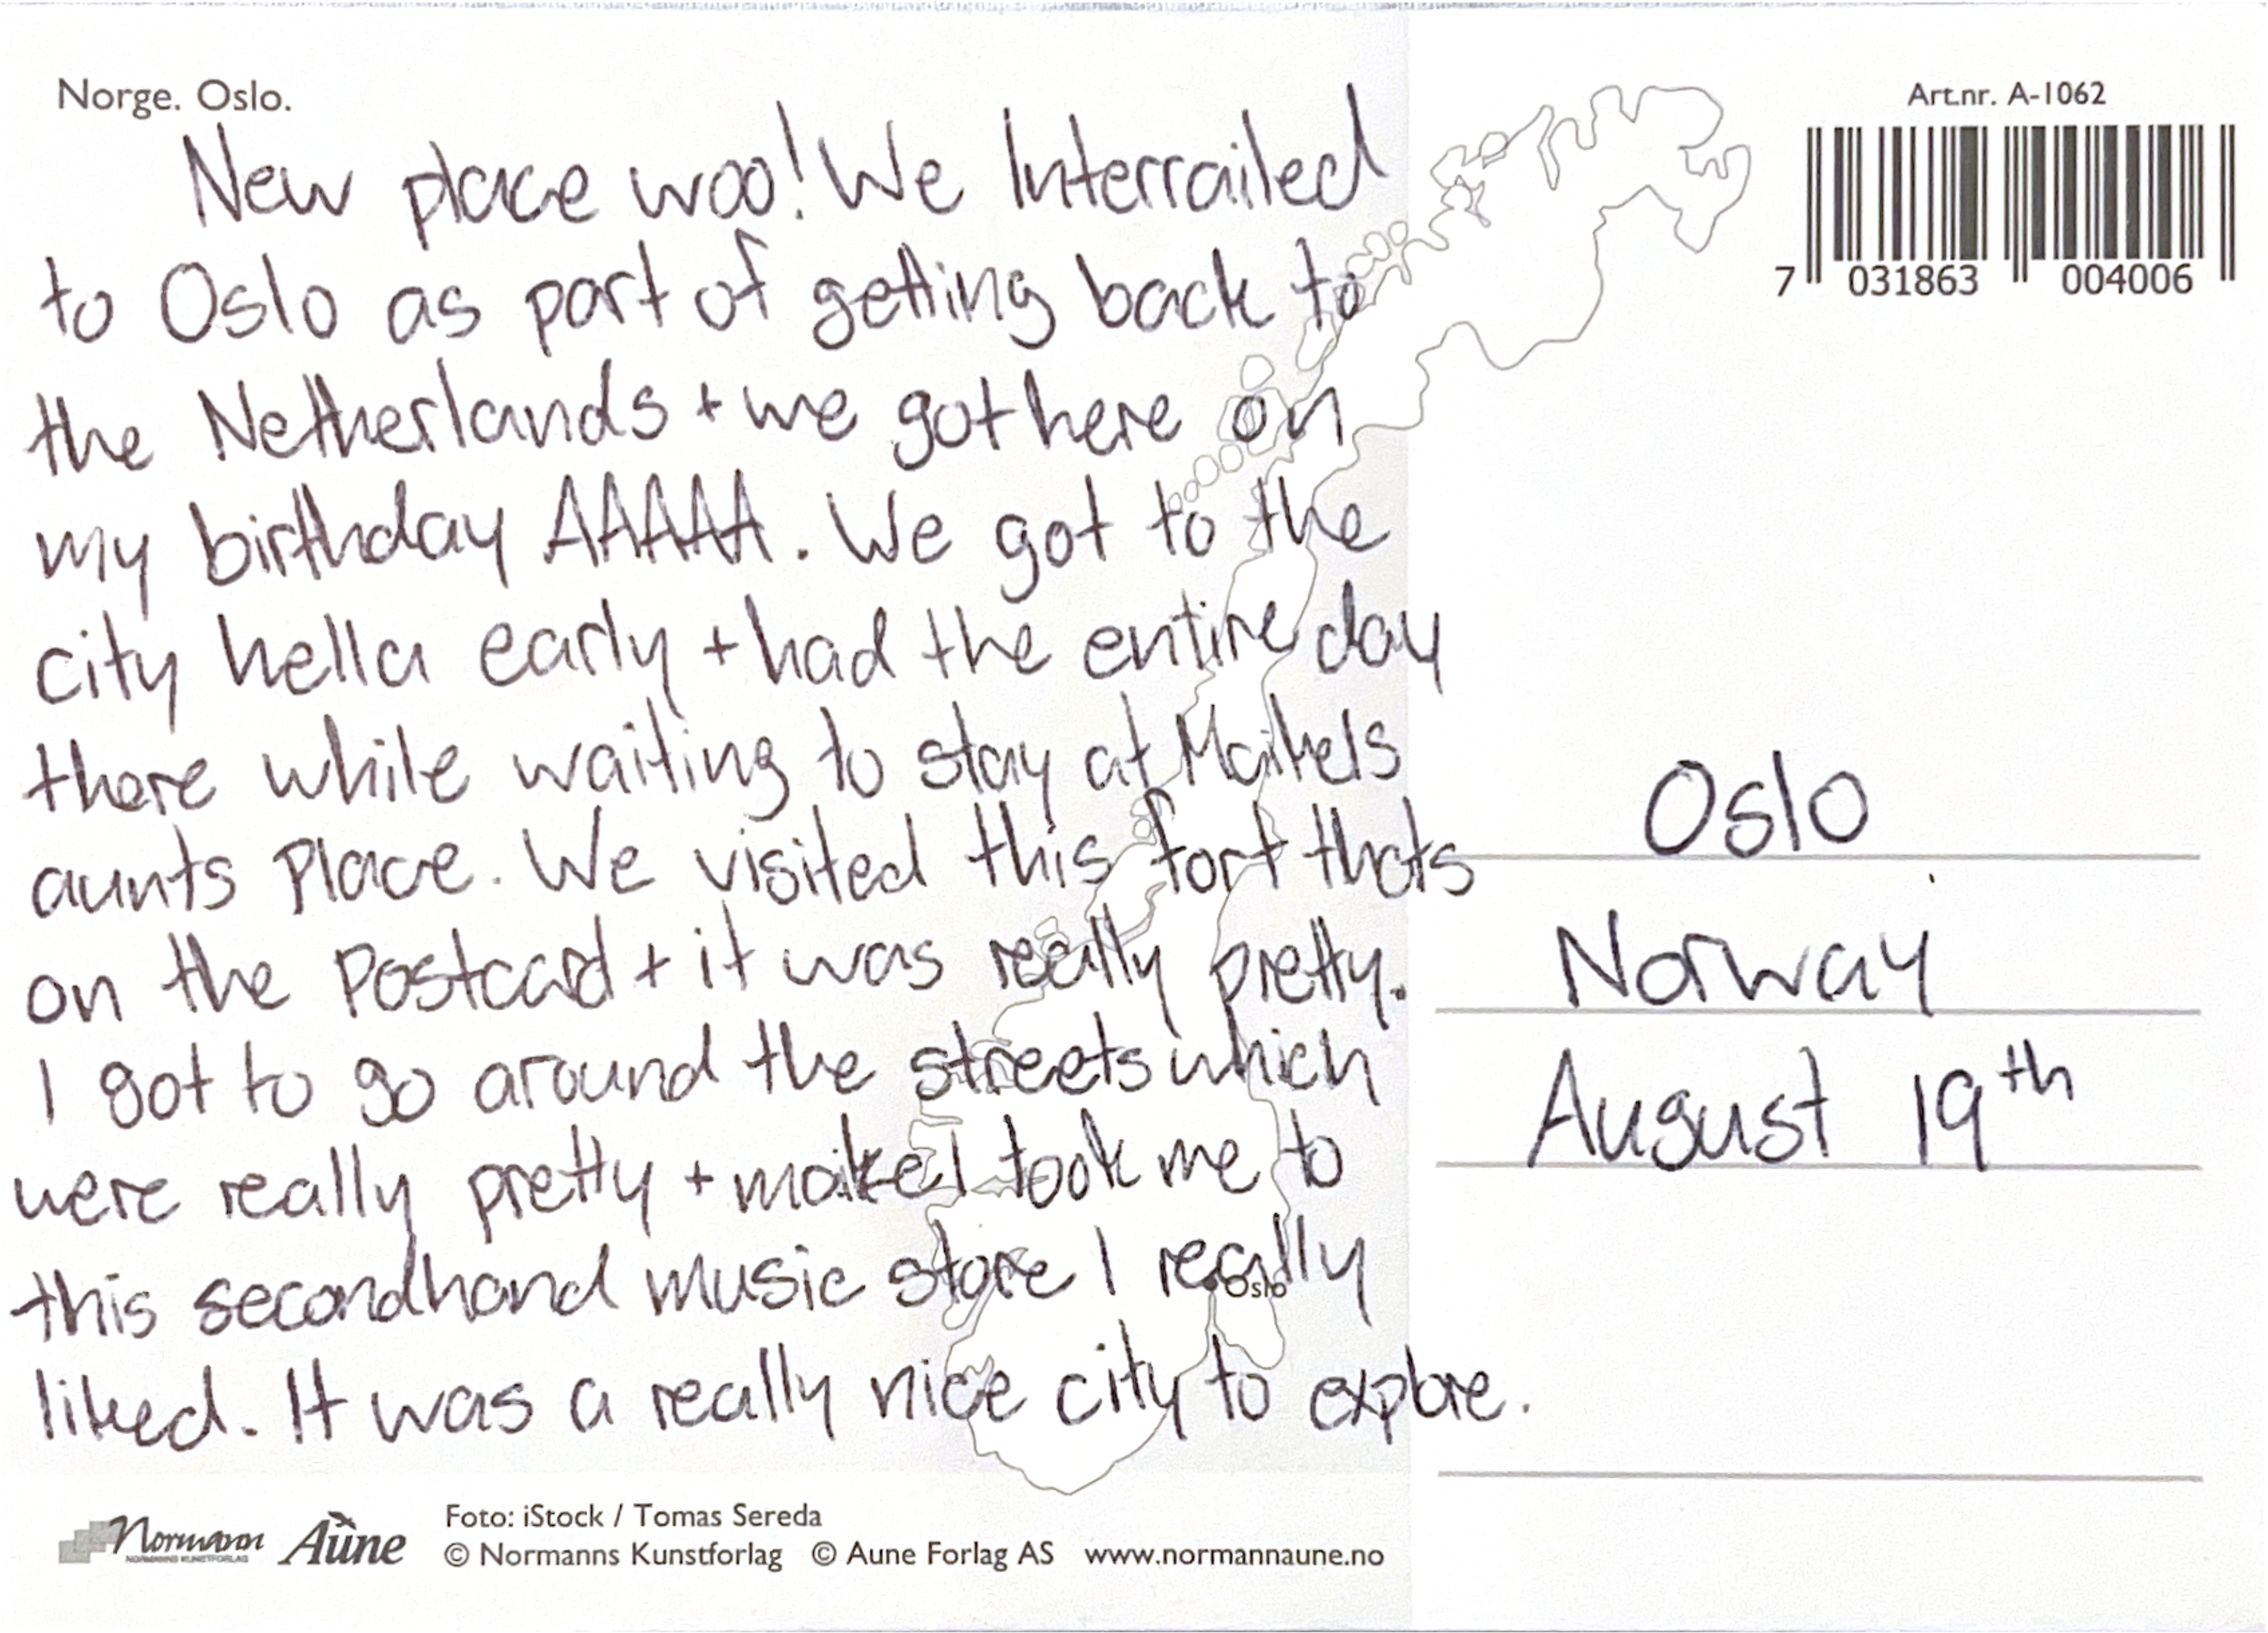 Norge. Oslo.
Art.nr. A-1062
7 031863 004006
New place woo! We Interrailed
to Oslo as part of getting back to
the Netherlands + we got here on
my birthday AAAAA. We got to the
city hella early + had the entire day
there while waiting to stay at Maikels
aunts place. We visited this fort thats
on the postcard + it was really pretty.
I got to go around the streets which
were really pretty + maikel took me to
this secondhand music store I really
liked. It was a really nice city to explore.
Oslo
Oslo
Norway
August 19th
Normann
NORMANNS KUNSTFORLAG
Aune
Foto: iStock / Tomas Sereda
© Normanns Kunstforlag © Aune Forlag AS www.normannaune.no